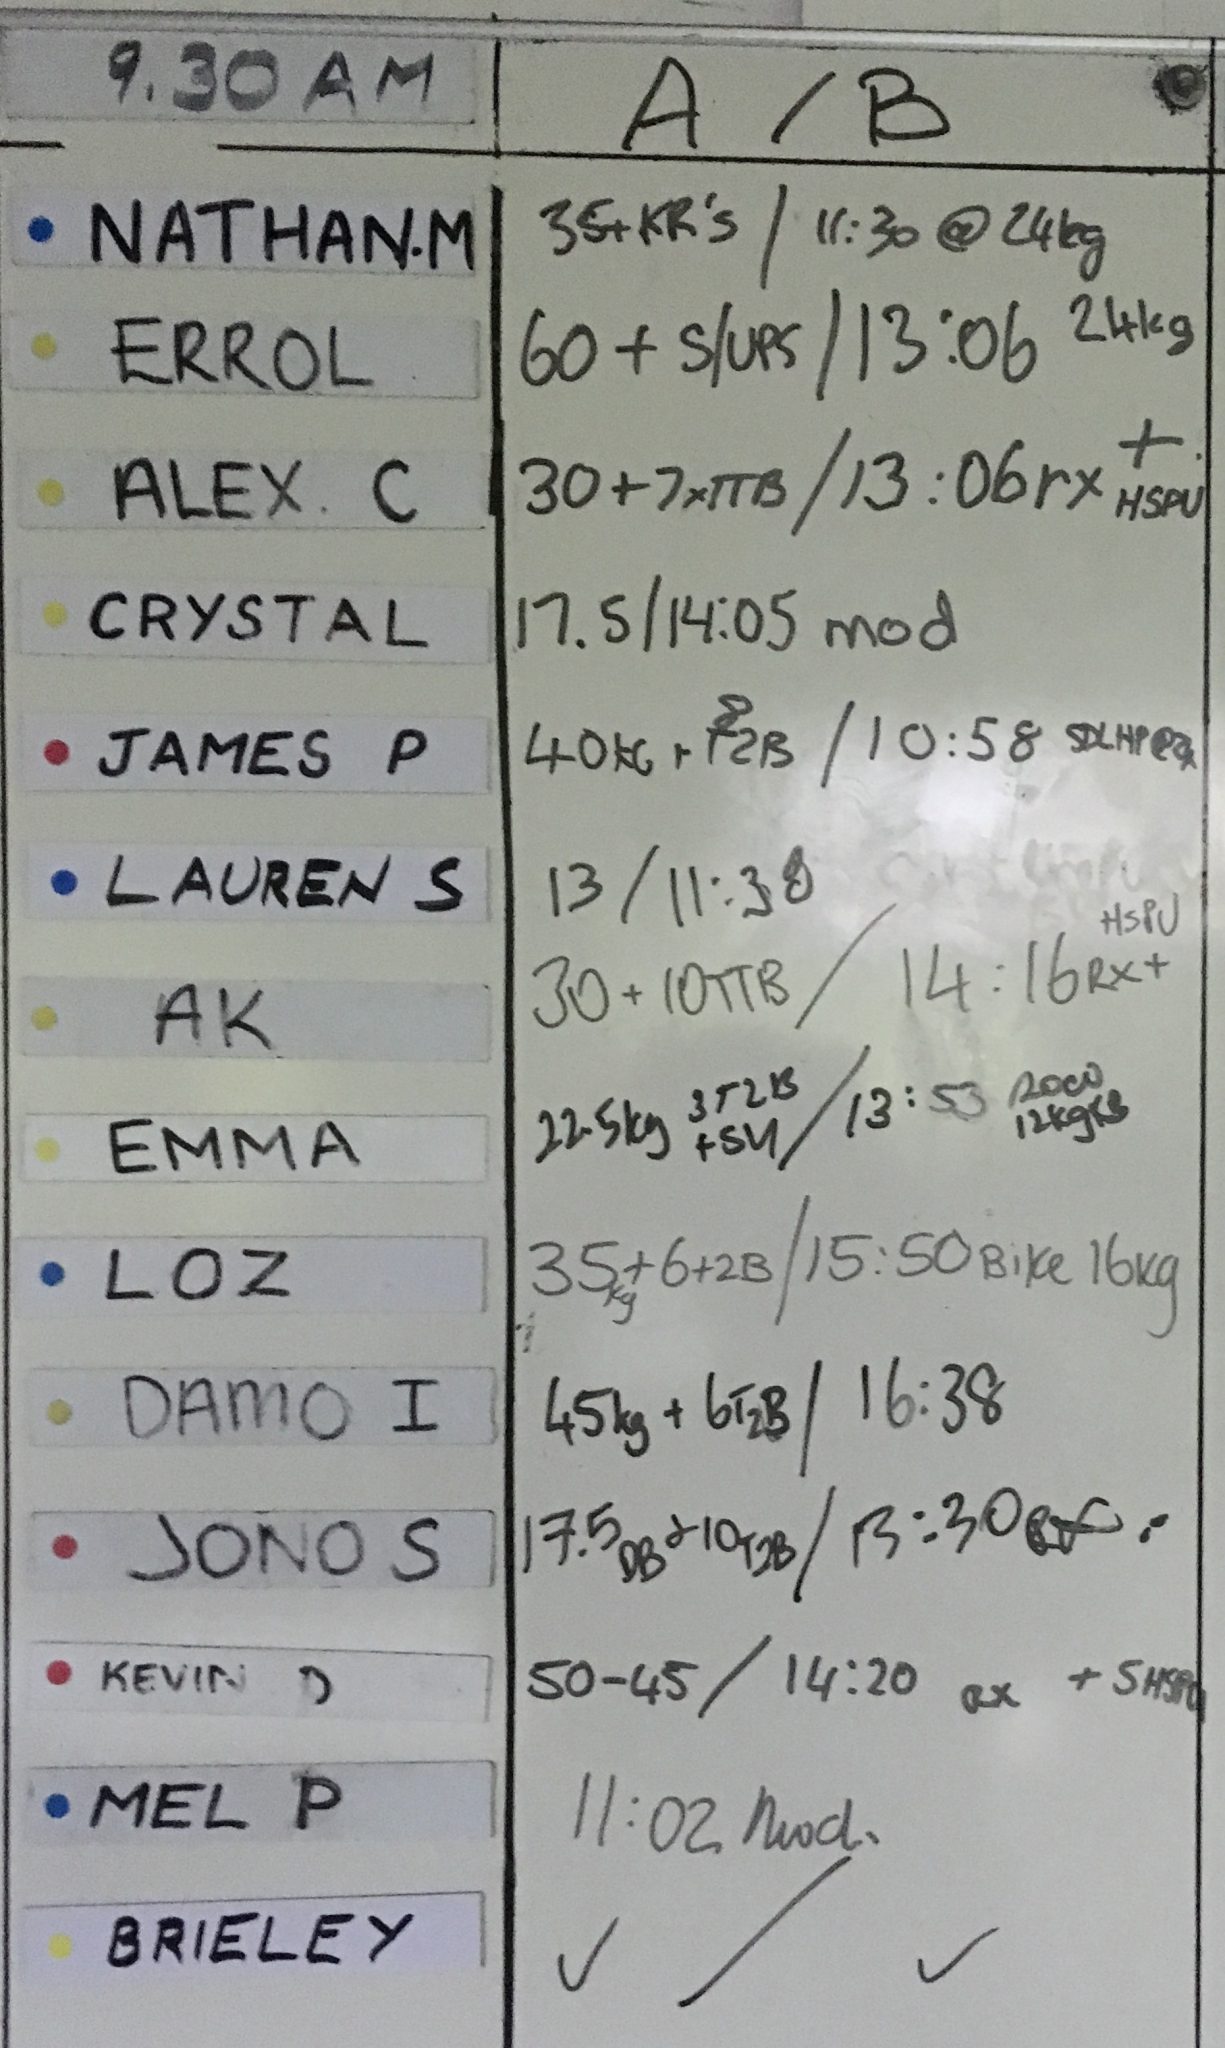 9.30 AM A / B
NATHAN.M 35+KR's / 11:30 @ 24kg
ERROL 60 + S/UPS / 13:06 24kg
ALEX. C 30 + 7xTTB / 13:06 rx + HSPU
CRYSTAL 17.5 / 14:05 mod
JAMES P 40KG + 8 T2B / 10:58 SDLHP
LAUREN S 13 / 11:38
AK 30 + 10 TTB / 14:16 Rx + HSPU
EMMA 22.5kg 3T2B + SU / 13:53 12kg KB
LOZ 35kg + 6 + 2B / 15:50 Bike 16kg
DAMO I 45kg + 6T2B / 16:38
JONO S 17.5 DB + 10 T2B / 13:30
KEVIN D 50-45 / 14:20 RX + 5 HSPU
MEL P 11:02 Mod.
BRIELEY ✓ / ✓